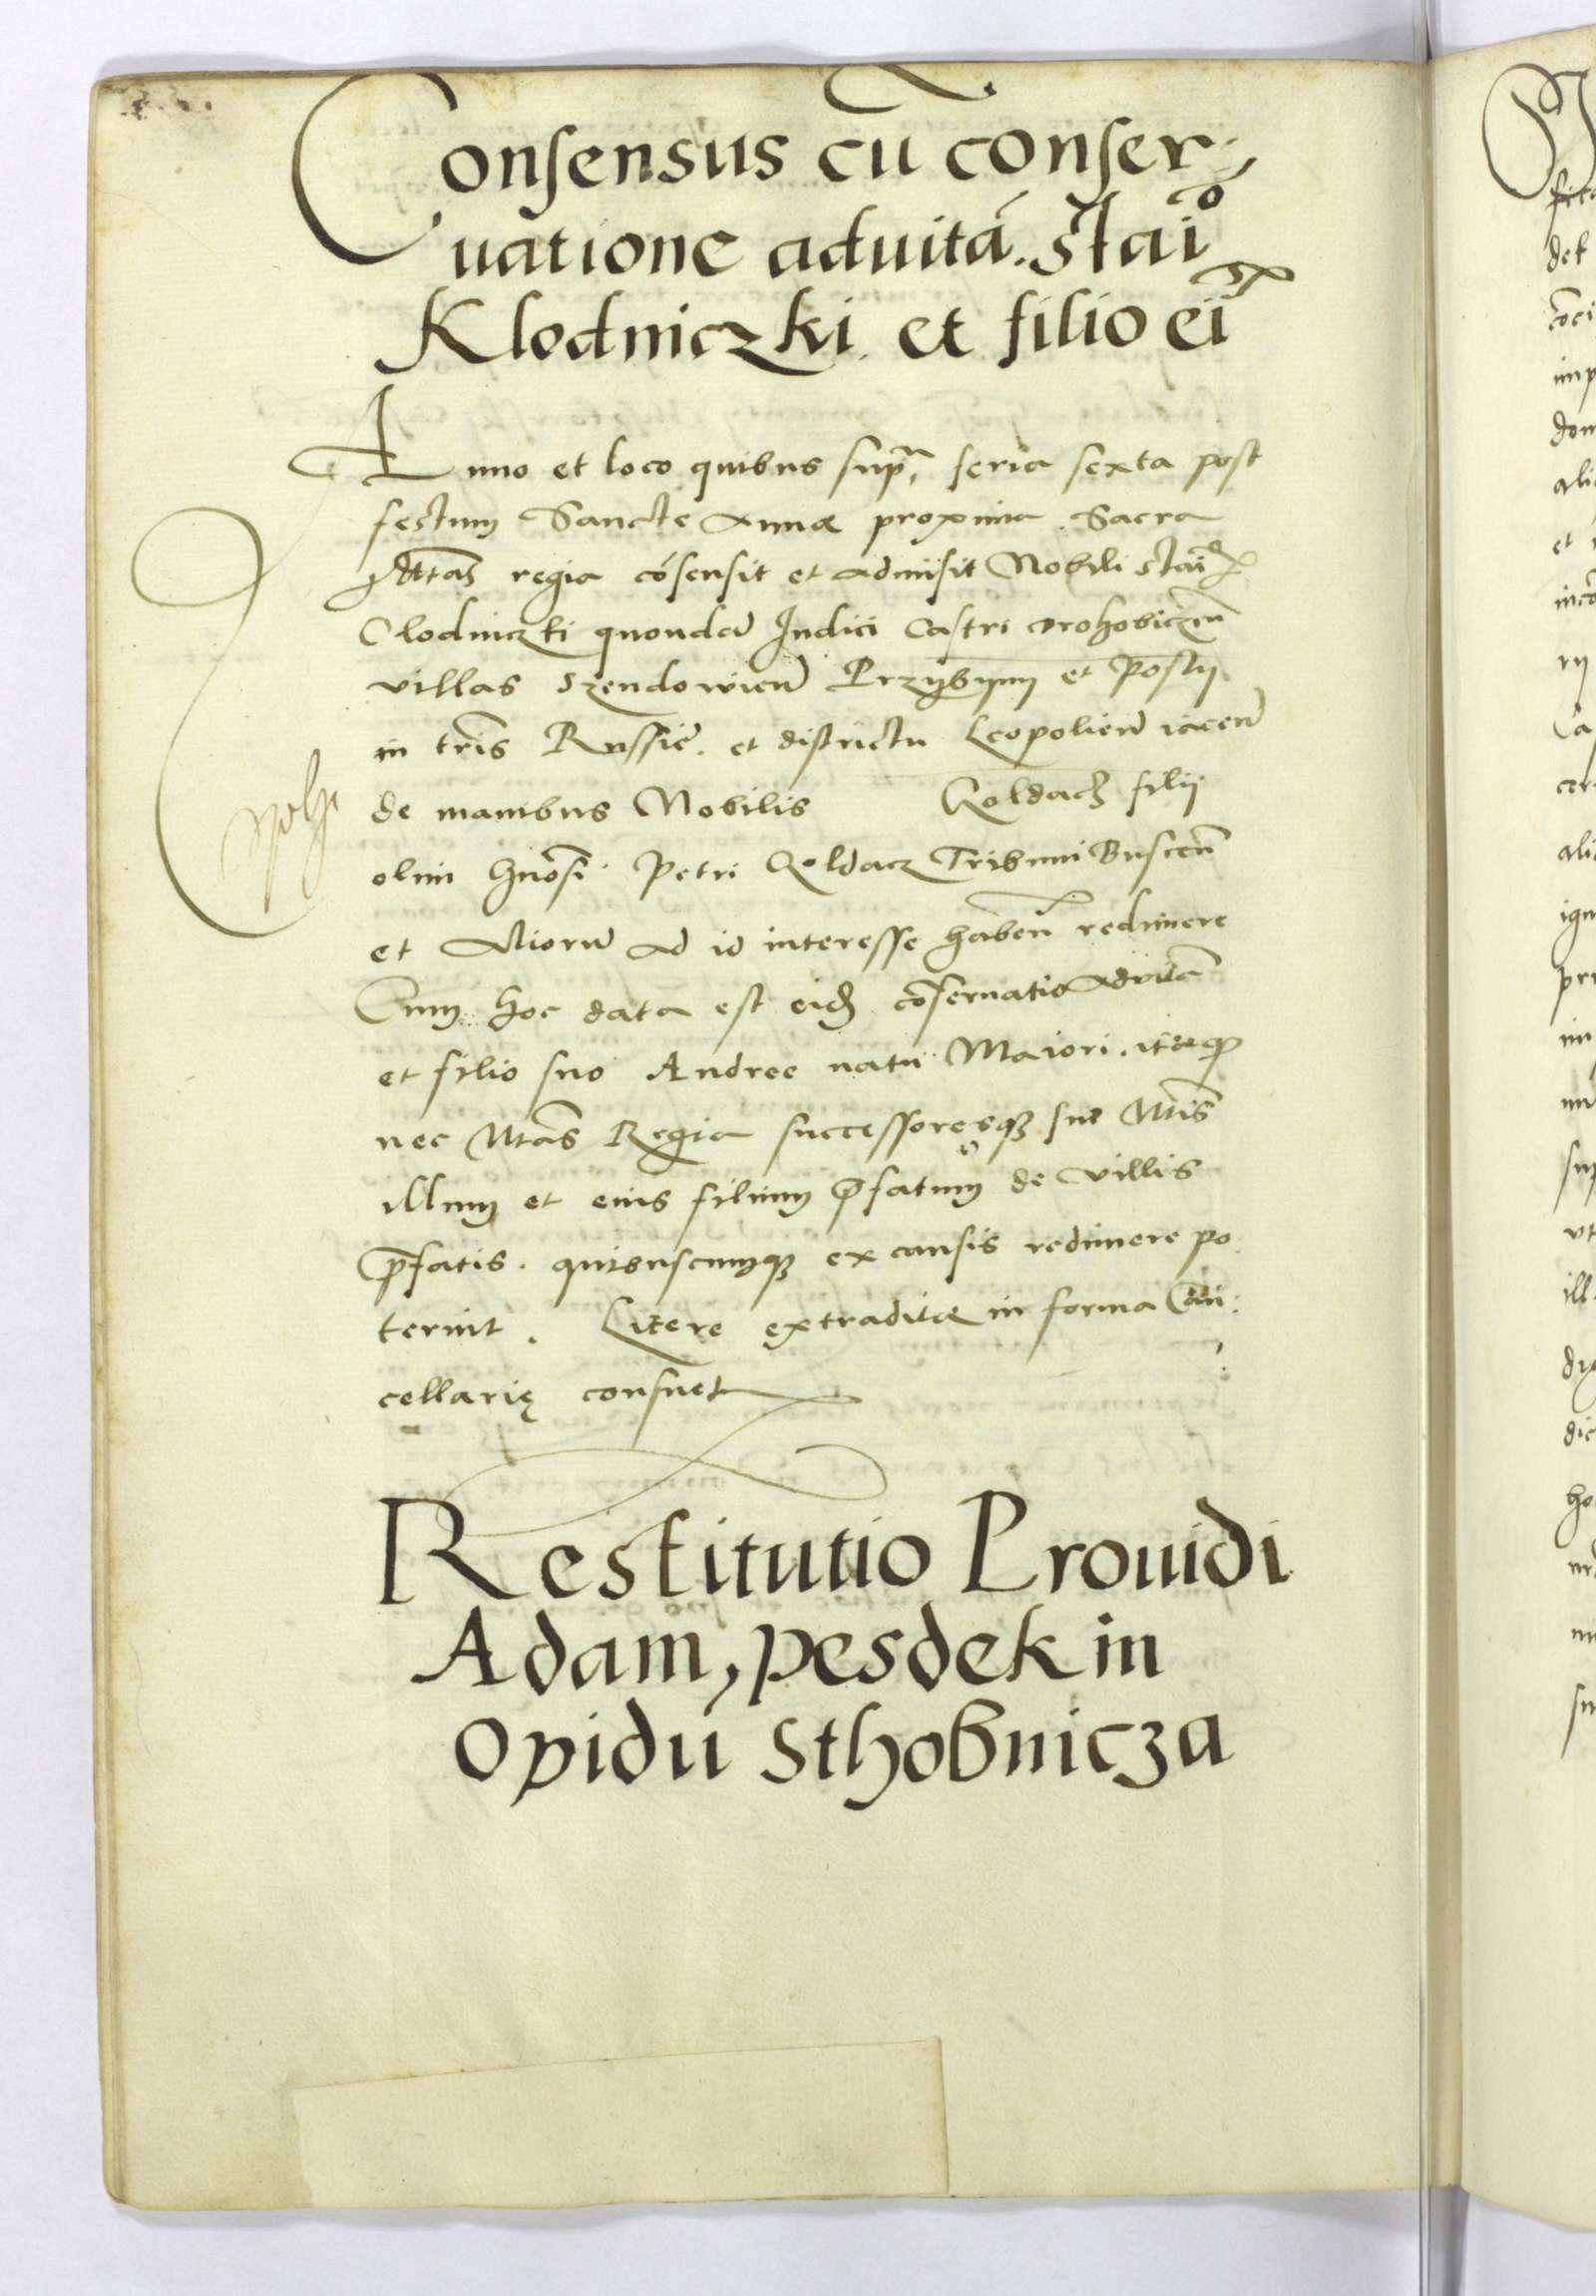 Consensus cū conser-
uatione aduitā. Stāīo
Klodniczki et filio eīꝰ
Anno et loco quibus supra, feria sexta post
festum Sancte Annæ proxima Sacra
Mtas regia cōsensit et admisit Nobili Staīo
Clodniczki quondā Iudici Castri Drohobiczēn
villas Szendowiēn Przybijnij et Postij
in tris Russiē. et districtu Leopoliēn iacēn
de manibus Nobilis Goldacz filij
olim Gnōsi Petri Goldacz Tribuni Buscēn
et Aliorū ad id interesse habēn redimere
Cum hoc data est eidē cōseruatio aduitā
et filio suo Andree natu Maiori. itaqꝫ
nec Mtās Regia successoresqꝫ sue Mtis
illum et eius filium p̄fatum de villis
p̄fatis. quibuscumqꝫ ex causis redimere po
terint. Litere extraditæ in forma Can:
cellarię consuet
Restitutio Prouidi
Adam, pesdek in
Opidū Sthobnicza